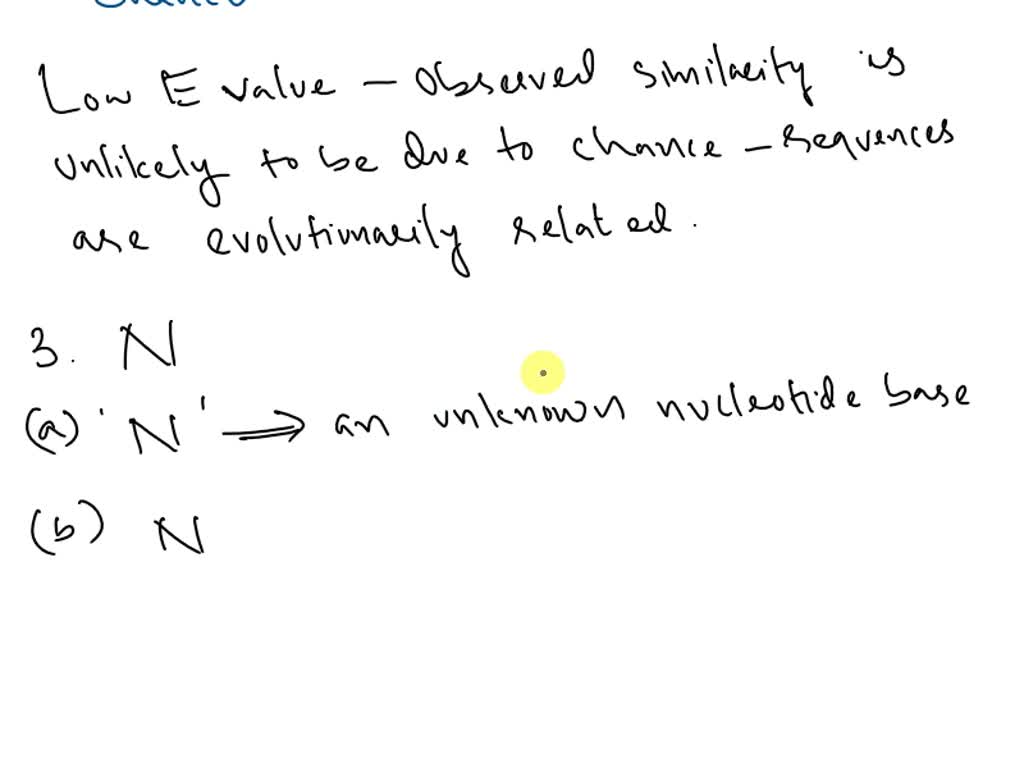 Low E value - Observed similarity is
unlikely to be due to chance - sequences
are evolutionarily related.
3. N
(a) 'N' ⟹ an unknown nucleotide base
(b) N